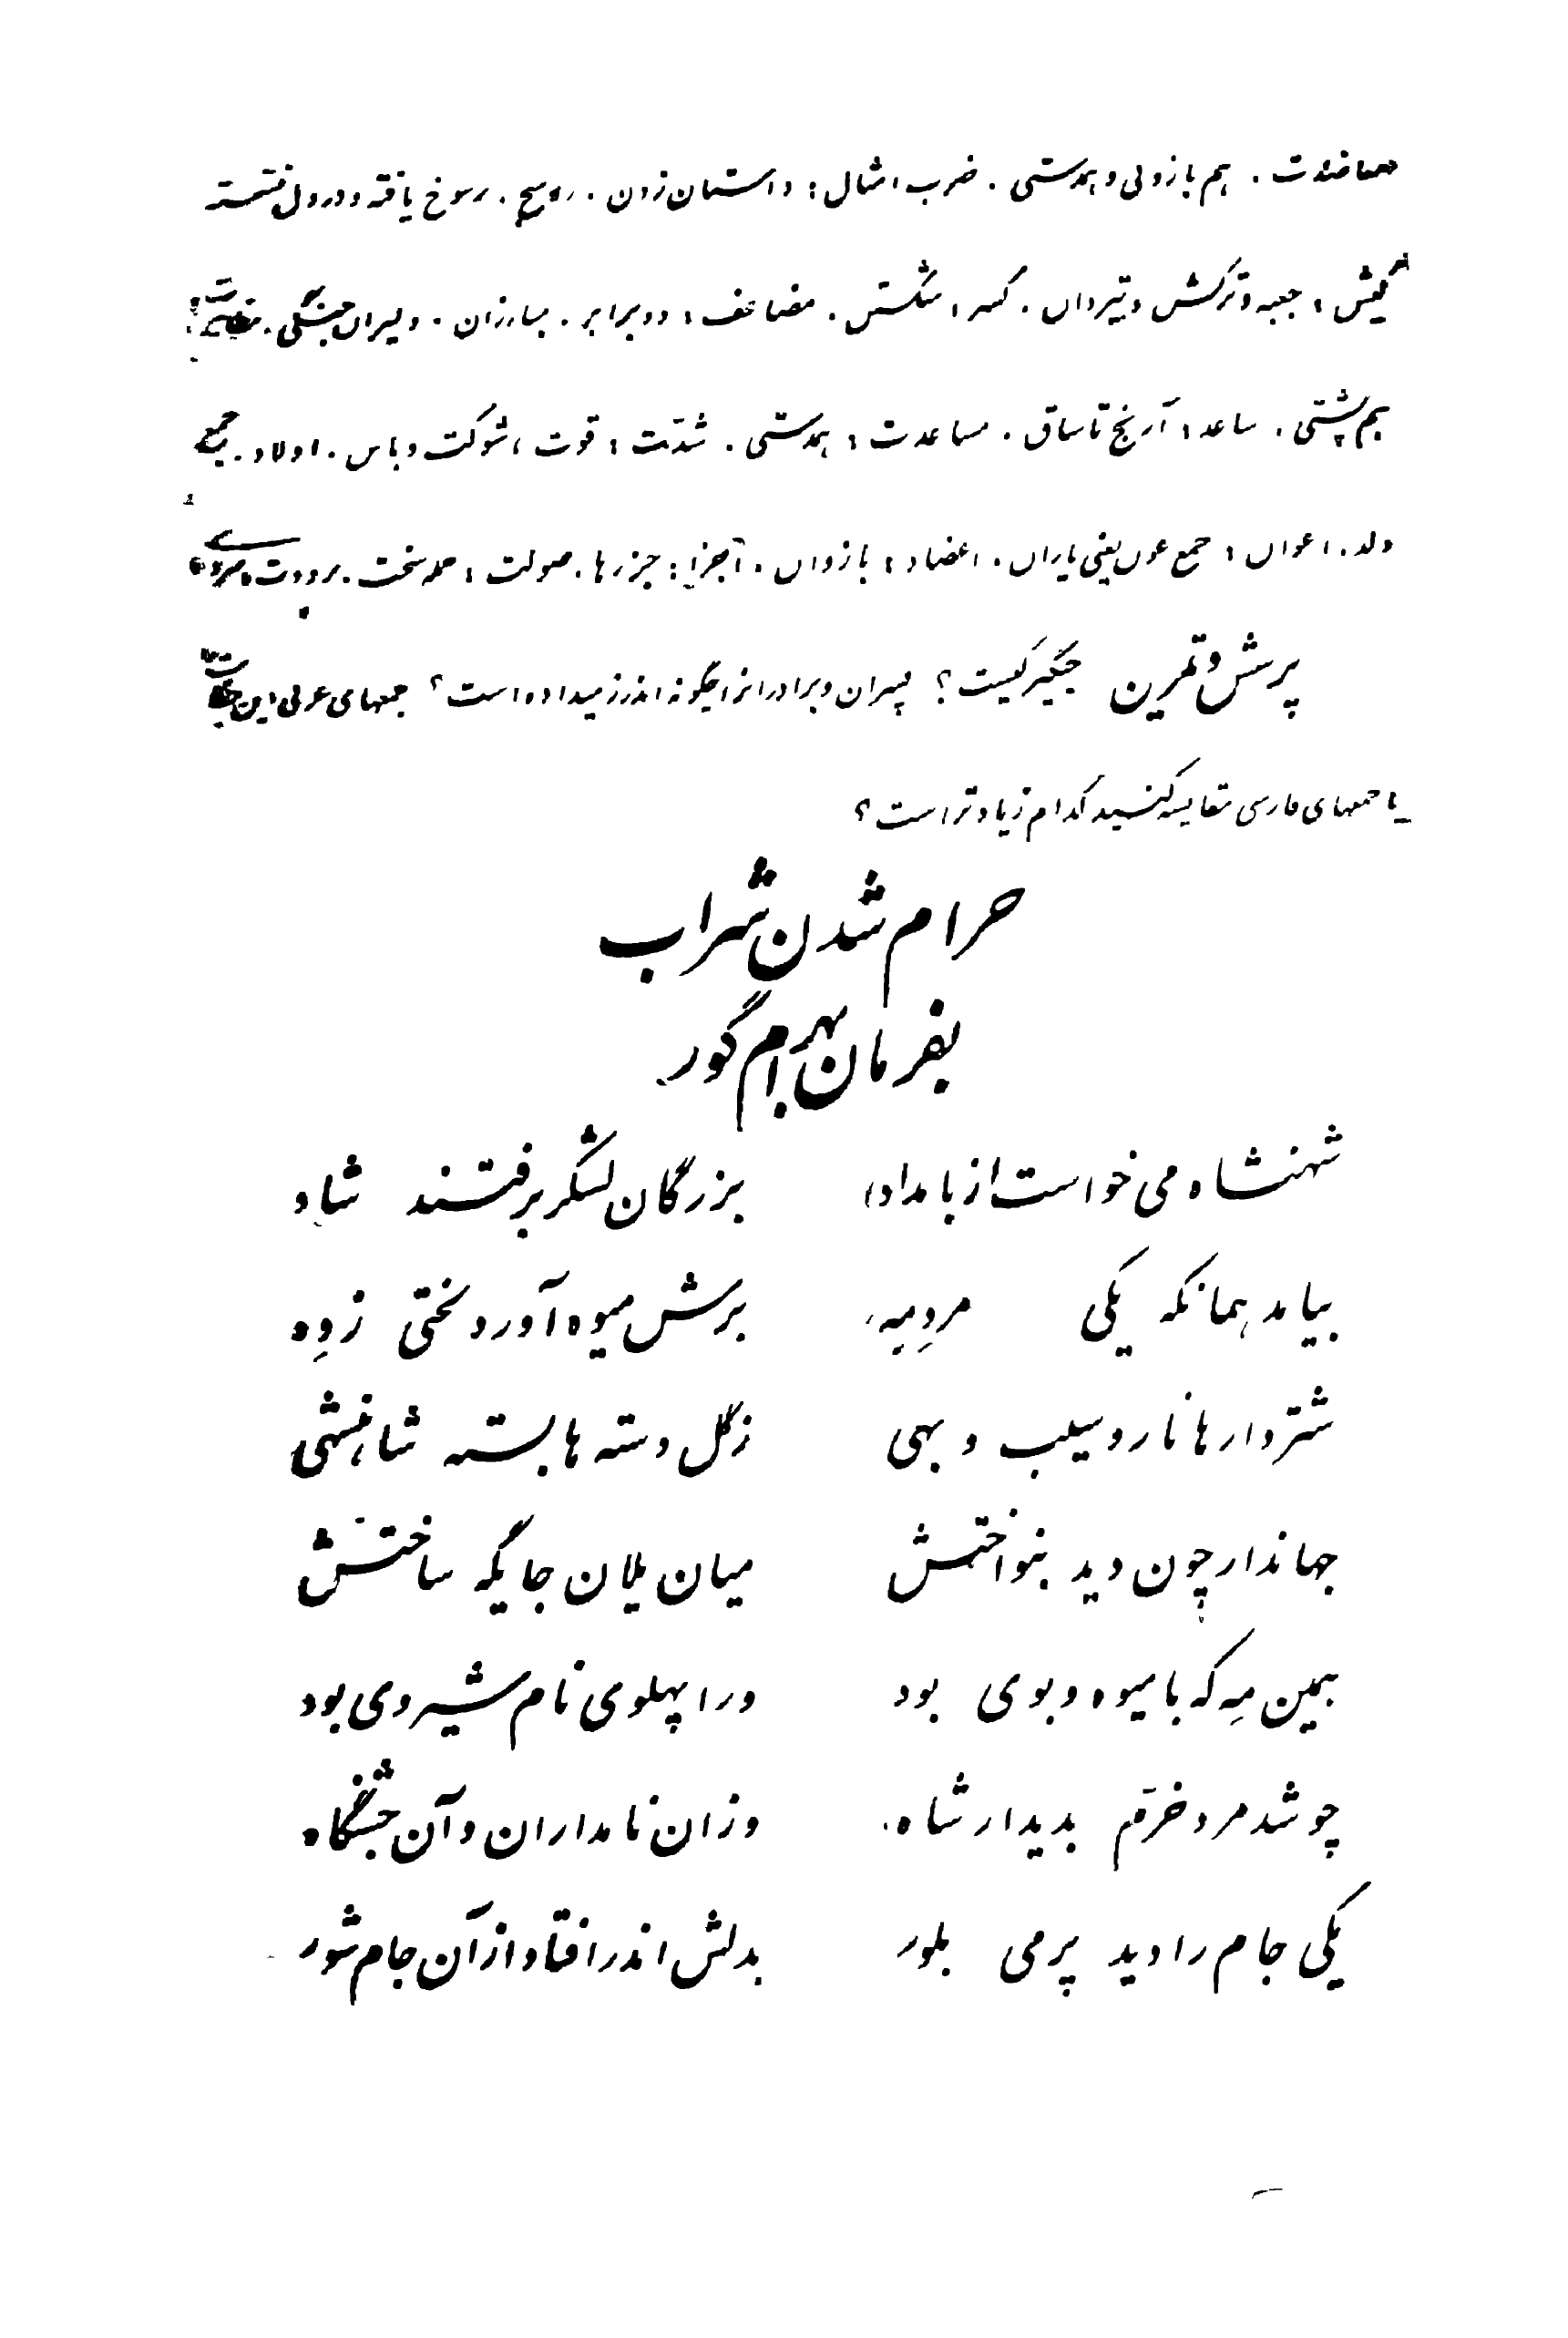 معاضدت . هم بازوئی و همدستی . ضرب امثال : داستان زدن . رسیخ . رسوخ یافته و در دل نشسته
کیش : جعبه و ترکش و تیردان . کسر : شکستن . مضاعف : دو برابر . مبارزان . دلیران جنگی .
هم پشتی . ساعد : آرنج تا ساق . مساعدت : همدستی . شدّت : قوت ، شوکت و باس . اولاد . جمع
ولد . اعوان : جمع عون یعنی یاران . اعضاد : بازوان . اجزا : جزرها . صولت : حمله سخت . برودت
پرسش و تمرین چنگیز کیست ؟ پسران و برادرانرا چگونه اندرز میداده است ؟ جمعهای عربی این
با جمعهای فارسی مقایسه کنید کدام زیادتر است ؟
حرام شدن شراب
بفرمان بهرام گور
شهنشاه می خواست از بامداد بزرگان لشگر برفتند شاد
بیامد همانگه یکی مردِمِه برش میوه آورد لختی زدِه
شتروارها نار و سیب و بهی ز گل دسته ها بسته شاهنشهی
جهاندار چون دید بنواختش میان یلان جایگه ساختش
همین مِه که با میوه و بوی بود ورا پهلوی نام شیروی بود
چو شد مرد خرّم بدیدار شاه وزان نامداران و آن جشنگاه
یکی جام را دید پر می بلور بدلش اندر افتاد از آن جام شور